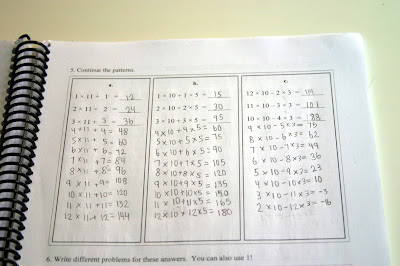 5. Continue the patterns.
a.
1 × 11 + 1 = 12
2 × 11 + 2 = 24
3 × 11 + 3 = 36
4 x 11 + 4 = 48
5 x 11 + 5 = 60
6 x 11 + 6 = 72
7 x 11 + 7 = 84
8 x 11 + 8 = 96
9 x 11 + 9 = 108
10 x 11 + 10 = 120
11 x 11 + 11 = 132
12 x 11 + 12 = 144
b.
1 × 10 + 1 × 5 = 15
2 × 10 + 2 × 5 = 30
3 × 10 + 3 × 5 = 45
4 x 10 + 4 x 5 = 60
5 x 10 + 5 x 5 = 75
6 x 10 + 6 x 5 = 90
7 x 10 + 7 x 5 = 105
8 x 10 + 8 x 5 = 120
9 x 10 + 9 x 5 = 135
10 x 10 + 10 x 5 = 150
11 x 10 + 11 x 5 = 165
12 x 10 + 12 x 5 = 180
c.
12 × 10 − 2 × 3 = 114
11 × 10 − 3 × 3 = 101
10 × 10 − 4 × 3 = 88
9 x 10 - 5 x 3 = 75
8 x 10 - 6 x 3 = 62
7 x 10 - 7 x 3 = 49
6 x 10 - 8 x 3 = 36
5 x 10 - 9 x 3 = 23
4 x 10 - 10 x 3 = 10
3 x 10 - 11 x 3 = -3
2 x 10 - 12 x 3 = -16
6. Write different problems for these answers. You can also use 1!